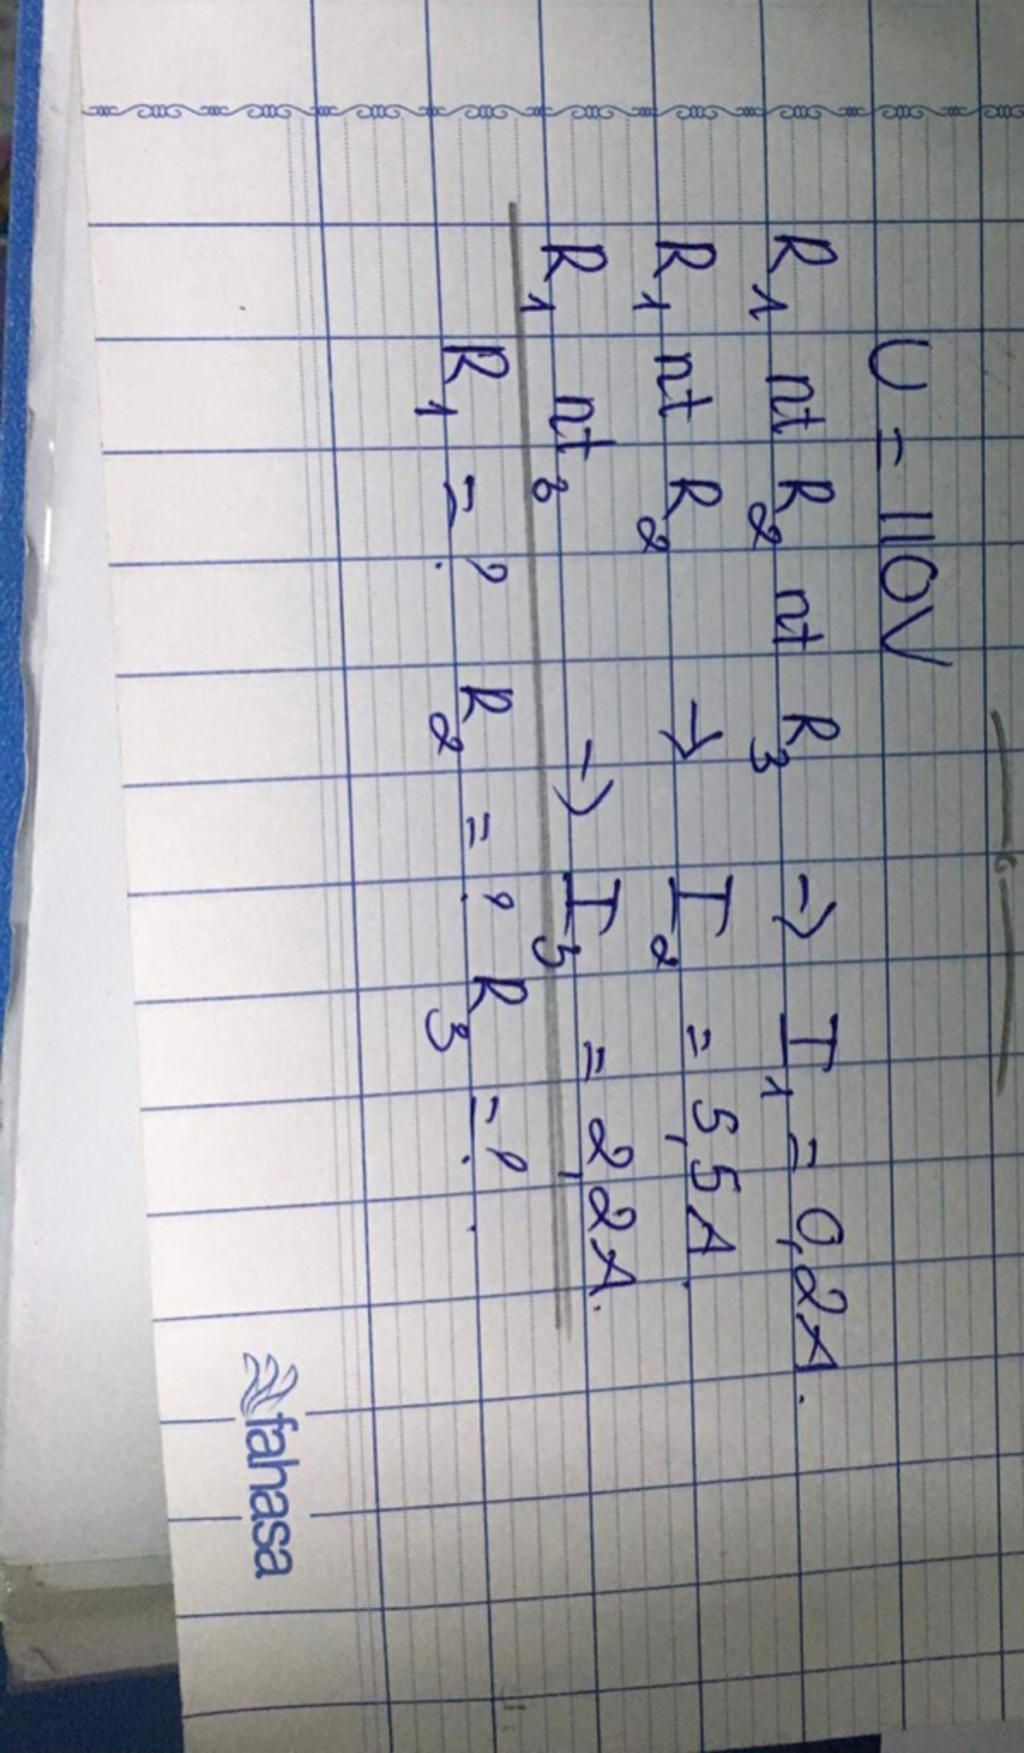 U = 110V
R1 nt R2 nt R3 → I1 = 0,2A.
R1 nt R2 → I2 = 5,5A.
R1 nt 3 → I3 = 2,2A.
R1 = ? R2 = ? R3 = ?.
fahasa